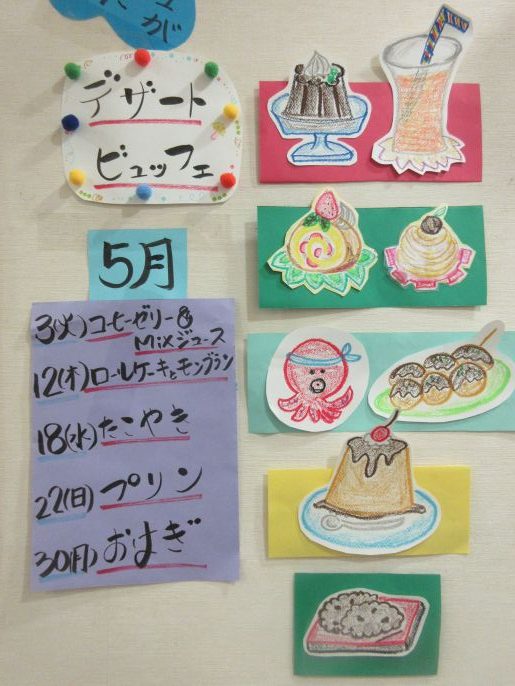 が
デザート
ビュッフェ
5月
3(火)コーヒーゼリー&
Mixジュース
12(木)ロールケーキとモンブラン
18(水)たこやき
22(日)プリン
30(月)おはぎ